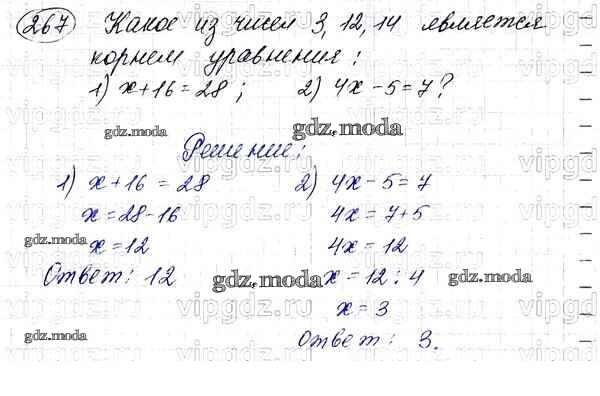 267 Какое из чисел 3, 12, 14 является
корнем уравнения:
1) x+16=28; 2) 4x-5=7?
gdz.moda gdz.moda
Решение:
1) x+16=28
x=28-16
gdz.moda
x=12
Ответ: 12
gdz.moda
2) 4x-5=7
4x=7+5
4x=12
gdz.moda
x=12:4
gdz.moda
x=3
Ответ: 3.
vipgdz.ru